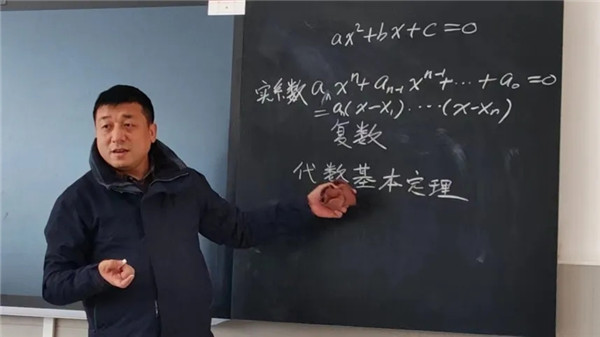 ax²+bx+c=0
实系数 aₙxⁿ+aₙ₋₁xⁿ⁻¹+⋯+a₀=0
=aₙ(x-x₁)⋯⋅(x-xₙ)
复数
代数基本定理